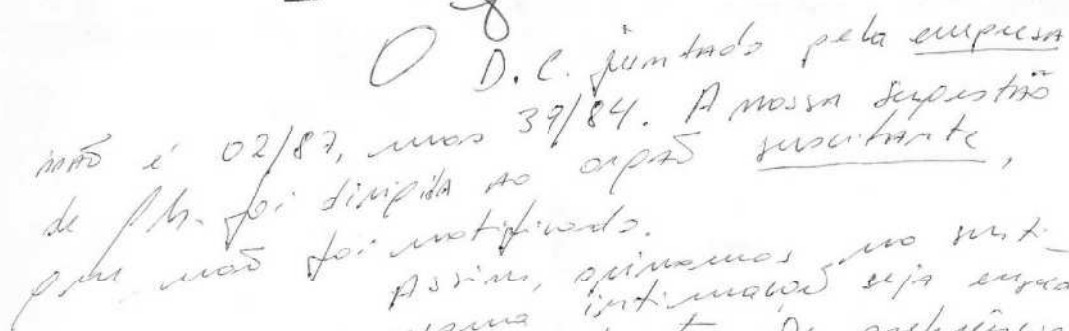 O D.C. juntado pela empresa
não é 02/87, mas 39/84. A nossa sugestão
de fls. foi dirigida ao órgão suscitante,
que não foi notificado.
Assim, opinamos no senti-
intimação seja